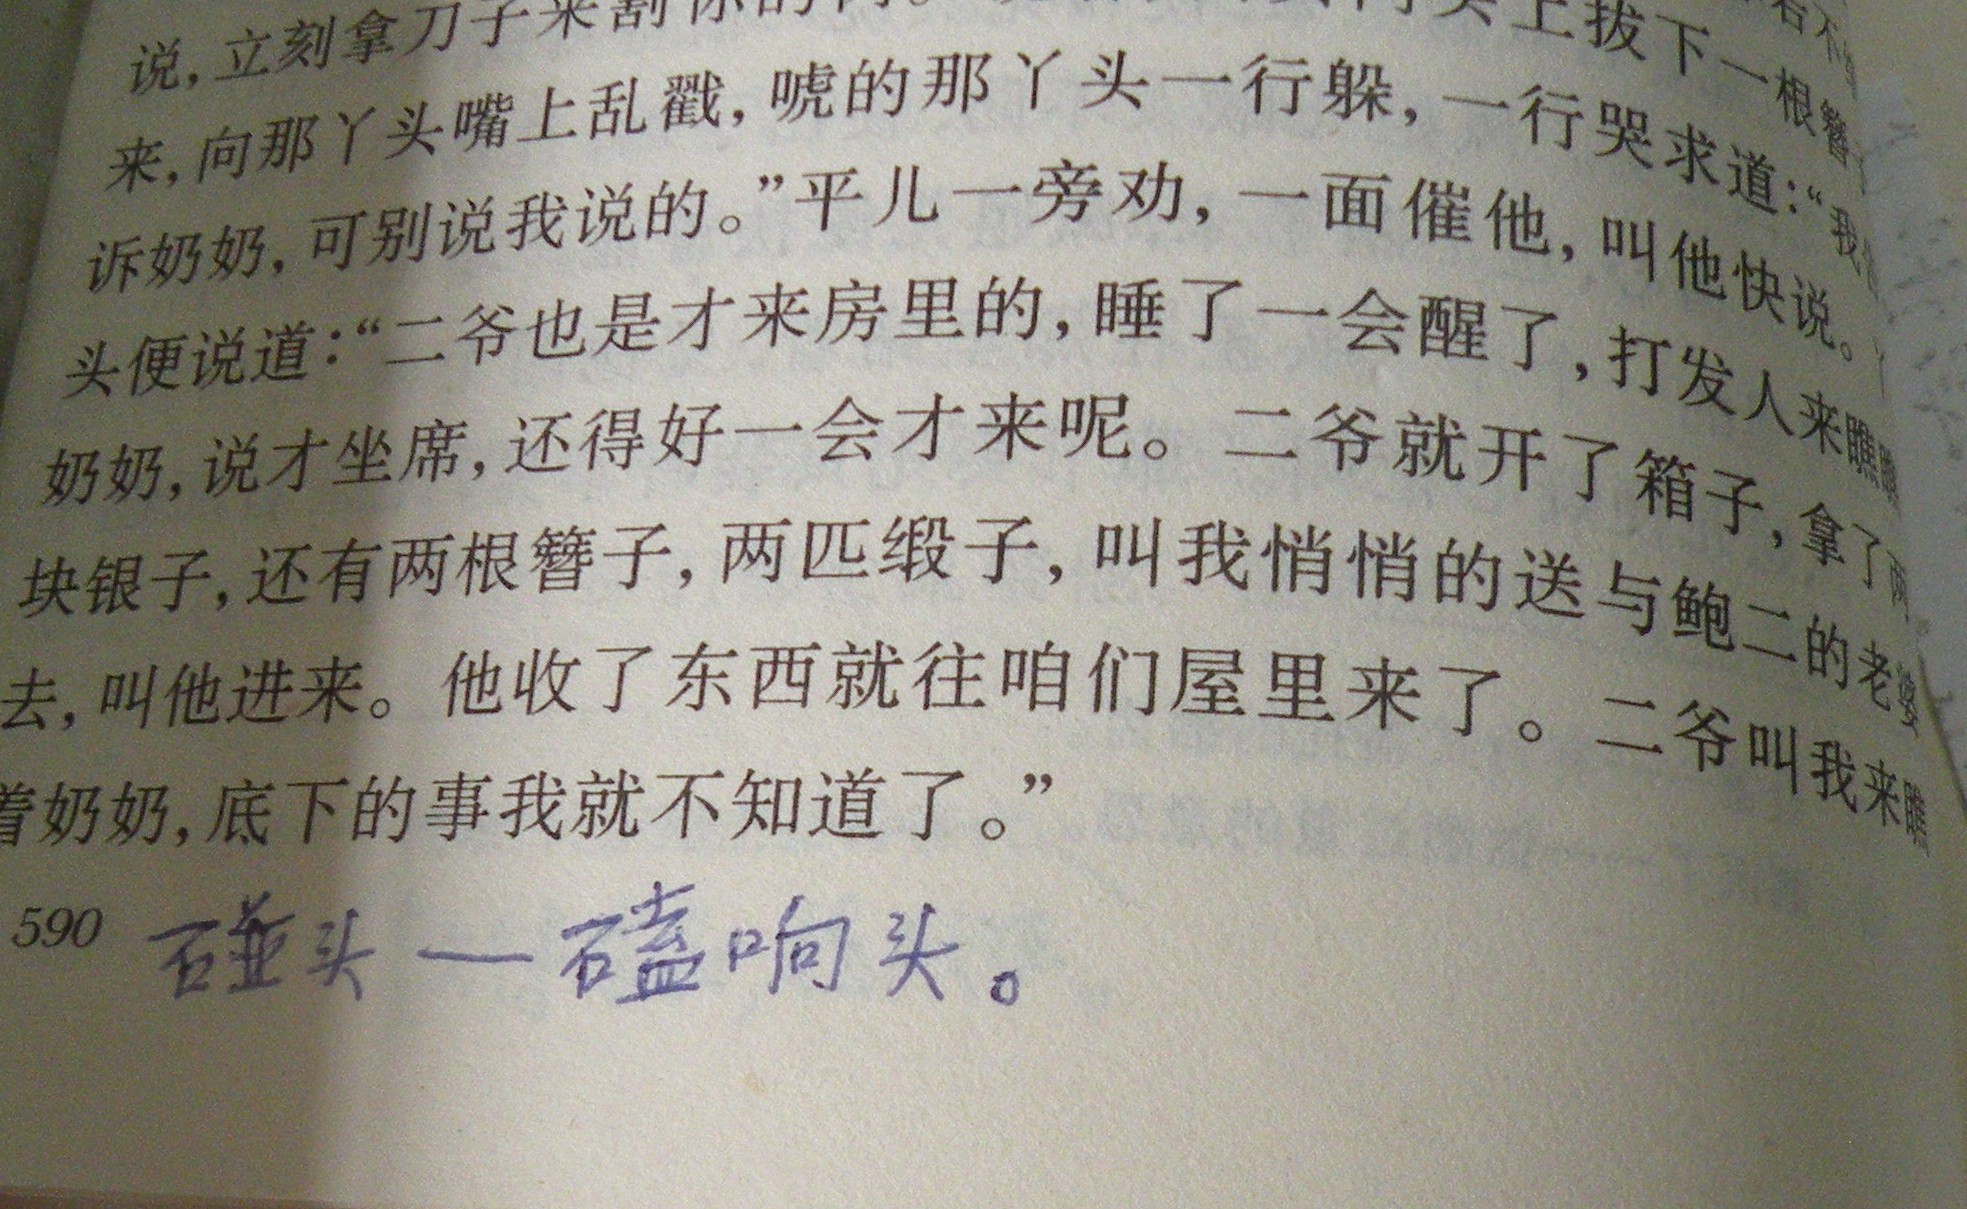 说，立刻拿刀子来割你的肉。
上拔下一根簪
来，向那丫头嘴上乱戳，唬的那丫头一行躲，一行哭求道：“我
诉奶奶，可别说我说的。”平儿一旁劝，一面催他，叫他快说。丫
头便说道：“二爷也是才来房里的，睡了一会醒了，打发人来瞧瞧
奶奶，说才坐席，还得好一会才来呢。二爷就开了箱子，拿了两
块银子，还有两根簪子，两匹缎子，叫我悄悄的送与鲍二的老婆
去，叫他进来。他收了东西就往咱们屋里来了。二爷叫我来瞧
着奶奶，底下的事我就不知道了。”
590
碰头一磕响头。